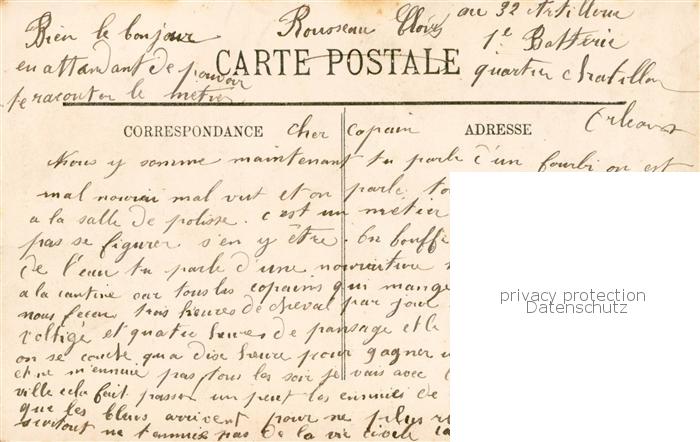 Bien le bonjour
en attandant de pouvoir
te raconter le métier
Rousseau Clovis au 32 Artillerie
1e Batterie
quartier chatillon
Orleans
CARTE POSTALE
CORRESPONDANCE
ADRESSE
cher copain
Nous y somme maintenant tu parle d'un fourbi on est
mal nourri mal vut et on parle
a la salle de polisse. c'est un métier
pas se figurer s'en y être. On bouffe
de l'eau tu parle d'une nourriture
a la cantine car tous les copains qui mange
nous fecon trois heures de cheval par jour
voltigé et quatre heures de pansage et le
on se couche qua dise heure pour gagner
et ne m'ennuie pas tous les soir je vais avec
ville cela fait passer un peut les ennuies de
que les bleus arrivent pour ne plus
surtout ne t'ennuie pas de la vie civile
privacy protection
Datenschutz